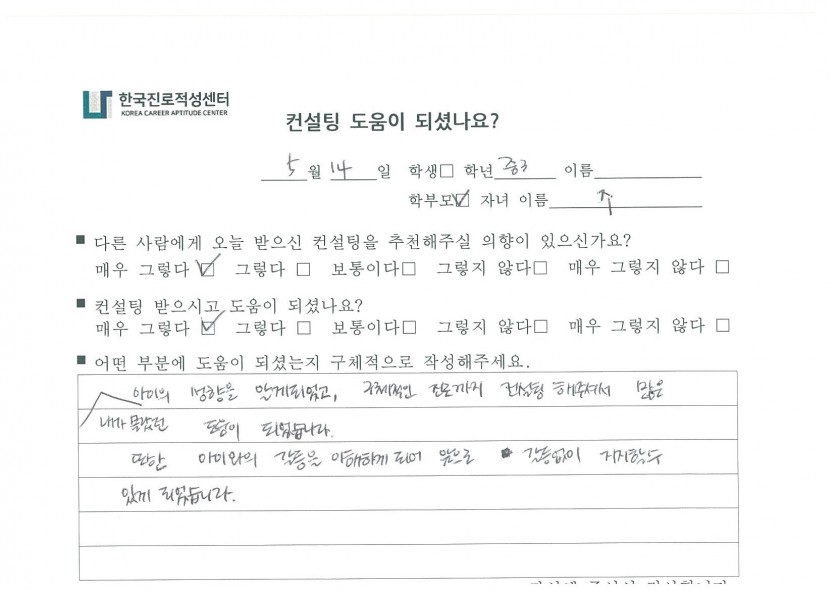 한국진로적성센터
KOREA CAREER APTITUDE CENTER
컨설팅 도움이 되셨나요?
5월 14일 학생□ 학년 중3 이름
학부모☑ 자녀 이름
■ 다른 사람에게 오늘 받으신 컨설팅을 추천해주실 의향이 있으신가요?
매우 그렇다 ☑ 그렇다 □ 보통이다□ 그렇지 않다□ 매우 그렇지 않다 □
■ 컨설팅 받으시고 도움이 되셨나요?
매우 그렇다 ☑ 그렇다 □ 보통이다□ 그렇지 않다□ 매우 그렇지 않다 □
■ 어떤 부분에 도움이 되셨는지 구체적으로 작성해주세요.
아이의 성향을 알게되었고, 구체적인 진로까지 컨설팅 해주셔서 많은
내가 몰랐던 도움이 되었습니다.
또한 아이와의 갈등을 이해하게 되어 앞으로 갈등없이 지지할수
있게 되었습니다.